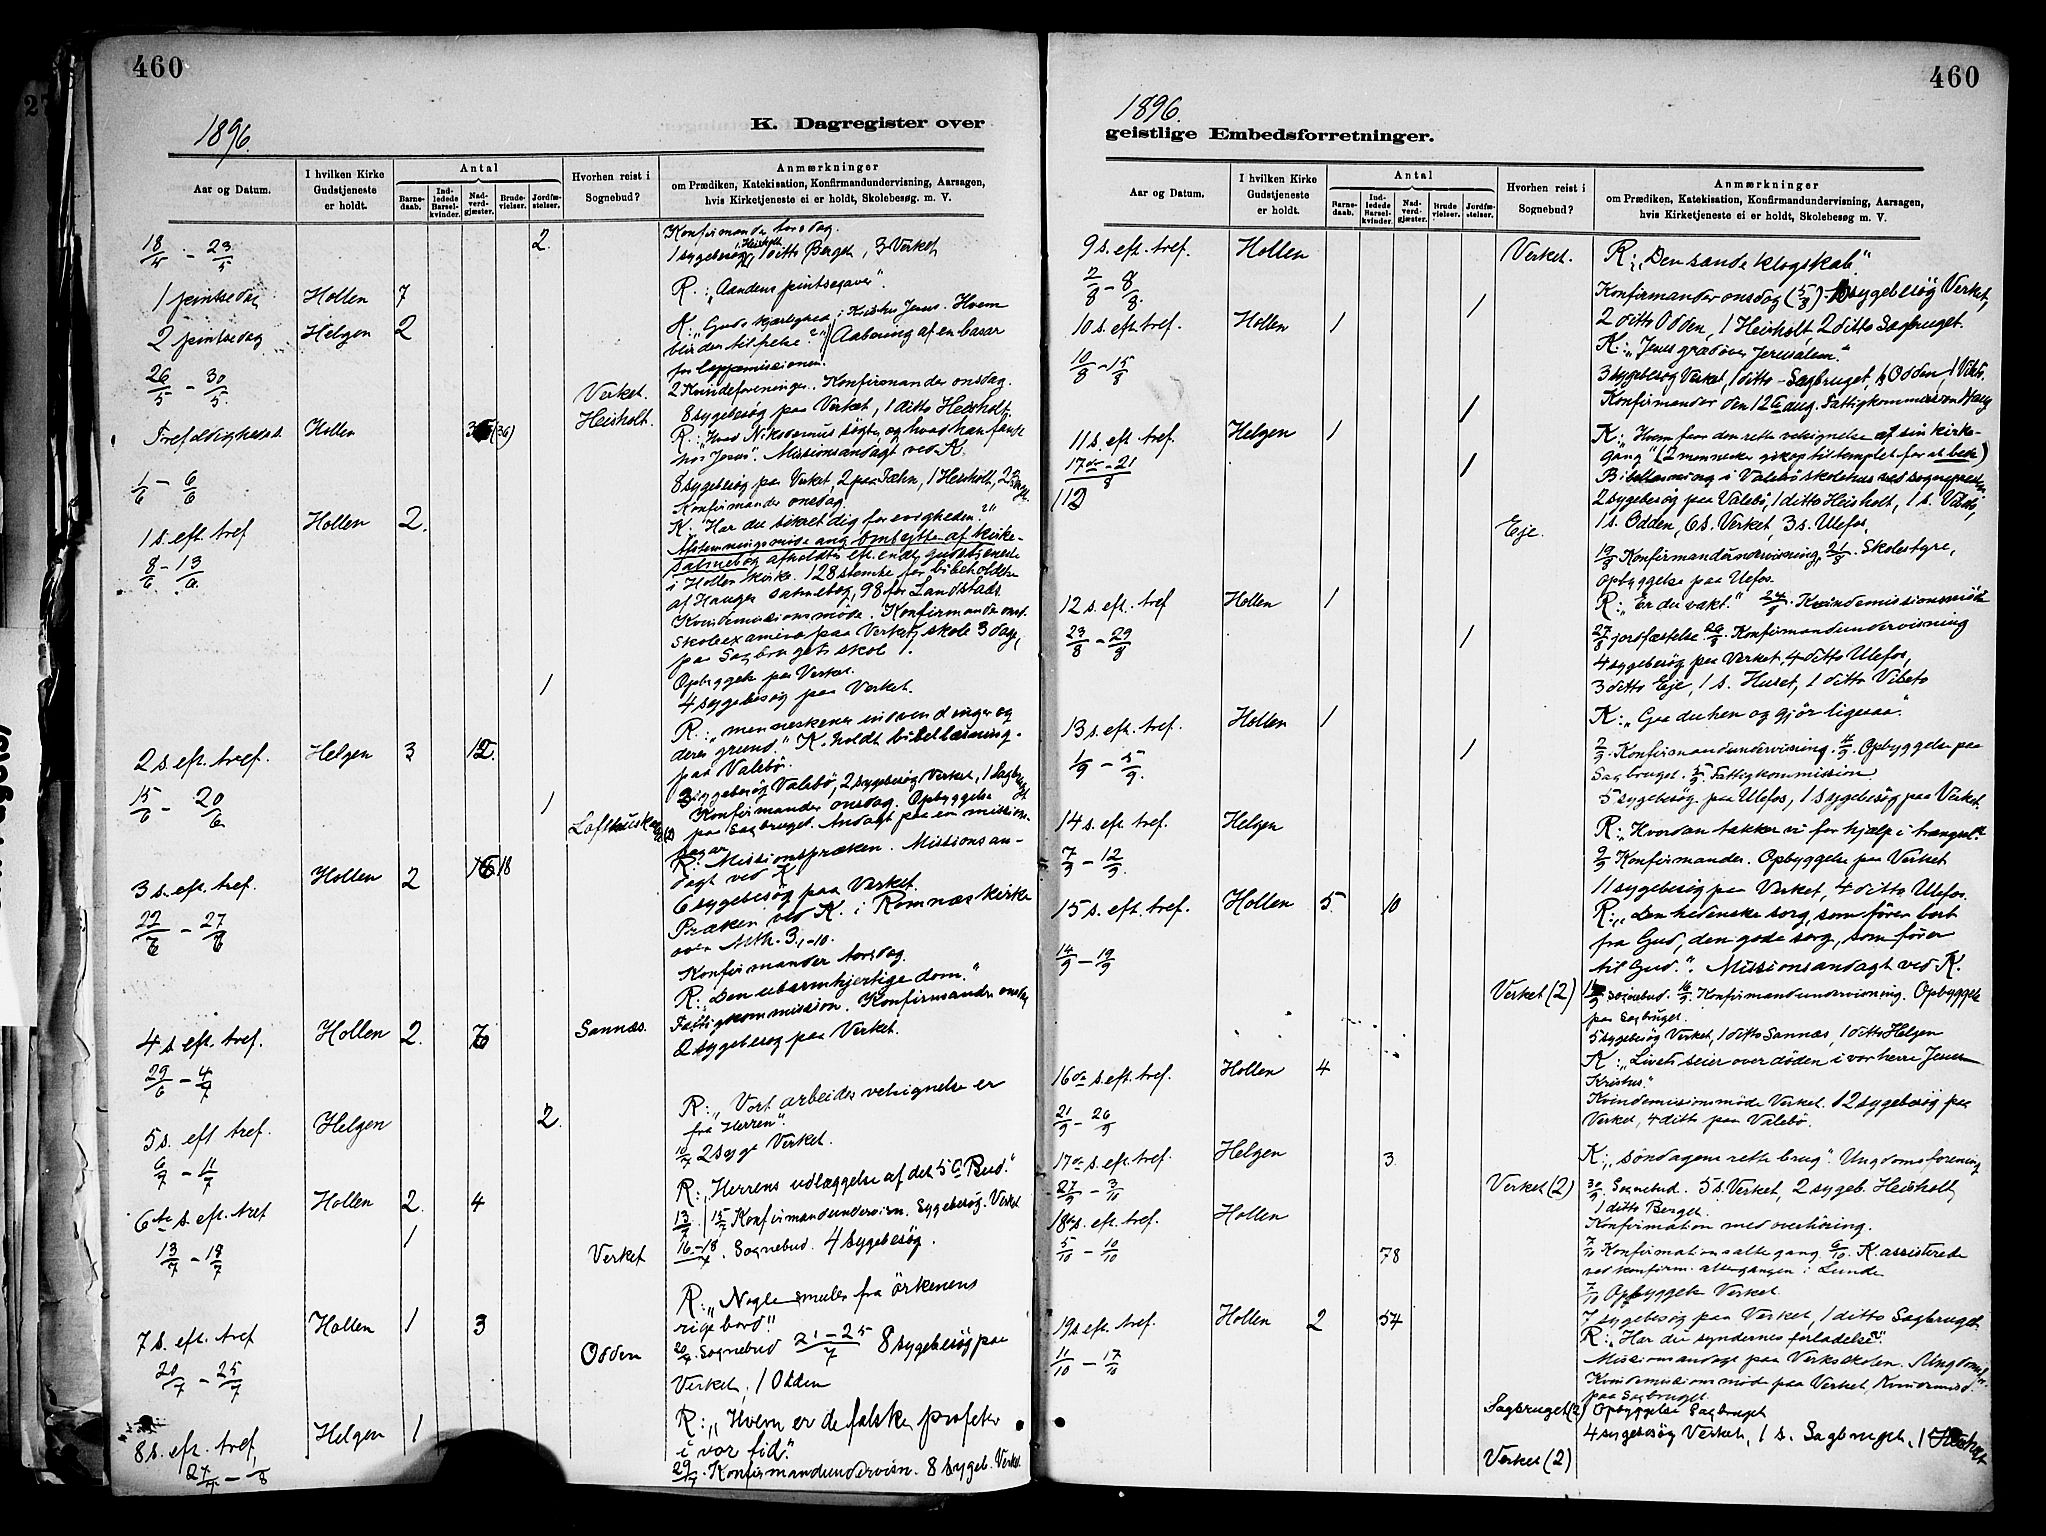 460
1896.
K. Dagregister over
Aar og Datum.
I hvilken Kirke Gudstjeneste er holdt.
Antal
Barne-daab.
Ind-ledede Barsel-kvinder.
Nad-verd-gjæster.
Brude-vielser.
Jordfæ-stelser.
Hvorhen reist i Sognebud?
Anmærkninger
om Prædiken, Katekisation, Konfirmandundervisning, Aarsagen,
hvis Kirketjeneste ei er holdt, Skolebesøg. m. V.
Konfirmander torsdag.
18/5 - 23/5 2. 1 sygebesøg Heisholt, 1 ditto Berget, 3 Verket,
1 pintsedag Hollen 7 R.: „Aandens pintsegaver".
2 pintsedag Helgen 2 K.: „Guds kjærlighed i Kristus Jesus. Hvem
blir den til pelse?" Aabning af en basar
for lappemissionen.
26/5 - 30/5. Verket. 2 Kvindeforeninger. Konfirmander onsdag.
Heisholt. 8 sygebesøg paa Verket, 1 ditto Heisholt.
Trefoldighedss. Hollen (36) R.: „Hvad Nikodemus søgte og hvad han fandt
hos Jesus". Missionsandagt ved K.
1/6 - 6/6 8 sygebesøg paa Verket, 2 paa Fæhn, 1 Heisholt, 2 Berget
Konfirmander onsdag.
1 s. eft. tref Hollen 2. K. "Har du sikret dig for evigheden?"
Afstemningsmøde ang. ombytte af kirke-
salmebog afholdtes eft. endt gudstjeneste
8/6 - 13/6 i Hollen kirke. 128 stemte for bibeholdelse
af Hauges salmebog, 98 for Landstads
Kvindemissionsmøde. Konfirmander onsd.
Skoleexamina paa Verkets skole 3 dage,
paa Sagbrugets skole 1.
Opbyggelse paa Verket.
1 4 sygebesøg paa Verket.
R.: „menneskenes indvendinger og
2 s. eft. tref. Helgen 3 12. deres grund." K. holdt bibellæsning
paa Valebø.
15/6 - 20/6 1 3 sygebesøg Valebø, 2 sygebesøg Verket, 1 Sagbruget
Konfirmander onsdag. Opbyggelse
paa Sagbruget. Andagt paa en mission-
basar
3 s. eft. tref. Hollen 2 18 R. Missionspræken. Missionsan-
dagt ved K
6 sygebesøg paa Verket.
22/6 - 27/6 Præken ved K. i Romnæs kirke
over Mth. 3, 1-10.
Konfirmander torsdag.
R.: „Den ubarmhjertige dom."
4 s. eft. tref. Hollen 2. Sannæs. Fattigkommission. Konfirmander onsdag
2 sygebesøg paa Verket.
29/6 - 4/7
5 s. eft tref. Helgen 2. R.: „Vort arbeides velsignelse er
fra Herren".
10/7 2 syge Verket.
6/7 - 11/7 R.: „Herrens udlæggelse af det 5te Bud."
6te s. eft. tref Hollen 2. 4 13/7. 15/7 Konfirmandundervisn. Sygebesøg. Verket
13/7 - 18/7 1 Verket 16-18/7. Sognebud. 4 sygebesøg.
R.: „Nogle smuler fra ørkenens
7 s. eft. tref Hollen 1 3 rige bord"
20/7 - 25/7 Odden 20/7. Sognebud 21-25/7 8 sygebesøg paa
Verket, 1 Odden
8 s. eft. tref, Helgen 1 R.: „Hvem er de falske profeter
i vor tid."
27/7 - 1/8 29/7. Konfirmandundervisn. 8 sygeb. Verket.
460
1896.
geistlige Embedsforretninger.
Aar og Datum.
I hvilken Kirke Gudstjeneste er holdt.
Antal
Barne-daab.
Ind-ledede Barsel-kvinder.
Nad-verd-gjæster.
Brude vielser.
Jordfæ-stelser.
Hvorhen reist i Sognebud?
Anmærkninger
om Prædiken, Katekisation, Konfirmandundervisning, Aarsagen,
hvis Kirketjeneste ei er holdt, Skolebesøg m. V.
9 s. eft. tref. Hollen Verket. R.: „Den sande klogskab".
2/8 - 8/8. 1 Konfirmander onsdag (5/8) sygebesøg Verket,
10 s. eft. tref. Hollen 1 2 ditto Odden, 1 Heisholt, 2 ditto Sagbruget.
K.: „Jesus græd over Jerusalem."
10/8 - 15/8 3 sygebesøg Verket, 1 ditto - Sagbruget, Odden, 1 Vibeto.
1 Konfirmander den 12te aug. Fattigkommission
11 s. eft. tref Helgen 1 K.: „Hvem faar den rette velsignelse af sin kirke-
gang" (2 mennesker gik op til templet for at bede)
17de - 21/8 1 Bibellæsning i Valebø skolehus ved sognepresten
2 sygebesøg paa Valebø, 1 ditto Heisholt, 1 s. Vibeto,
Eje. 1 s. Odden, 6 s. Verket, 3 s. Ulefos,
19/8 Konfirmandundervisning, 21/8. Skolestyre,
Opbyggelse paa Ulefos.
12 s. eft. tref Hollen 1 R.: „Er du vakt." 24/8. Kvindemissionsmøde
23/8 - 29/8 1 27/8 jordfæstelse. 26/8. Konfirmandundervisning
4 sygebesøg paa Verket, 4 ditto Ulefos,
3 ditto Eje, 1 s. Huset, 1 ditto Vibeto
13 s. eft. tref. Hollen 1 K.: „Gaa du hen og gjør ligesaa".
1/9 - 5/9. 1 2/9. Konfirmandundervisning. 4/9. Opbyggelse paa
Sagbruget. 5/9. Fattigkommission
5 sygebesøg paa Ulefos, 1 sygebesøg paa Verket.
14 s. eft. tref. Helgen R.: „Hvordan takker vi for hjælp i trængsel"
7/9 - 12/9. 9/9 Konfirmander. Opbyggelse paa Verket
11 sygebesøg paa Verket, 4 ditto Ulefos.
15 s. eft. tref. Hollen 5. 10 R.: „Den hedenske sorg, som fører bort
fra Gud, den gode sorg, som fører
14/9 - 19/9 til Gud." Missionsandagt ved K.
Verket (2) sognebud. 16/9. Konfirmandundervisning. Opbyggelse
paa Sagbruget.
5 sygebesøg Verket, 1 ditto Sannæs, 1 ditto Helgen
16de s. eft. tref. Hollen 4 K.: „Livets seier over døden i vor herre Jesus
Kristus."
21/9 - 26/9 Kvindemissionsmøde Verket. 12 sygebesøg paa
Verket, 4 ditto paa Valebø.
17de s. eft. tref. Helgen 3. K.: „søndagens rette brug". Ungdomsforening
27/9 - 3/10 Verket (2) 30/9. Sognebud. 5 s. Verket, 2 sygeb. Heisholt,
1 ditto Berget.
18de s. eft. tref. Hollen Konfirmation med overhøring.
5/10 - 10/10 78 7/10 Konfirmationsaltergang. 6/10. K. assisterede
ved konfirm. altergangen i Lunde
7/10 Opbyggelse Verket.
19 s. eft. tref. Hollen 2 54 7 sygebesøg paa Verket, 1 ditto Sagbruget.
R.: „Har du syndernes forladelse".
11/10 - 17/10 Missionsandagt paa Verkskolen. Ungdomsf.
Kvindemissionsmøde paa Verket, Kvindemisd.
paa Sagbruget.
Sagbruget (2) Opbyggelse Sagbruget
4 sygebesøg Verket, 1 s. Sagbruget, 1 Heisholt
Verket (2)